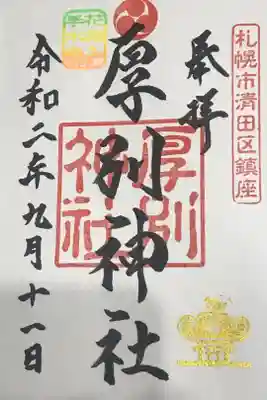 札幌市清田区鎮座
奉拝
厚別神社
厚別
神社
令和二年九月十一日